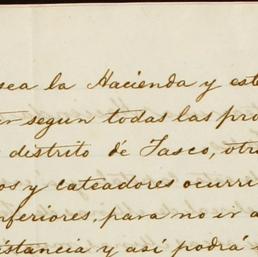 sea la Hacienda y este
er segun todas las pro
distrito de Tasco, otro
os y cateadores ocurri
nferiores, para no ir a
istancia y asi podrá